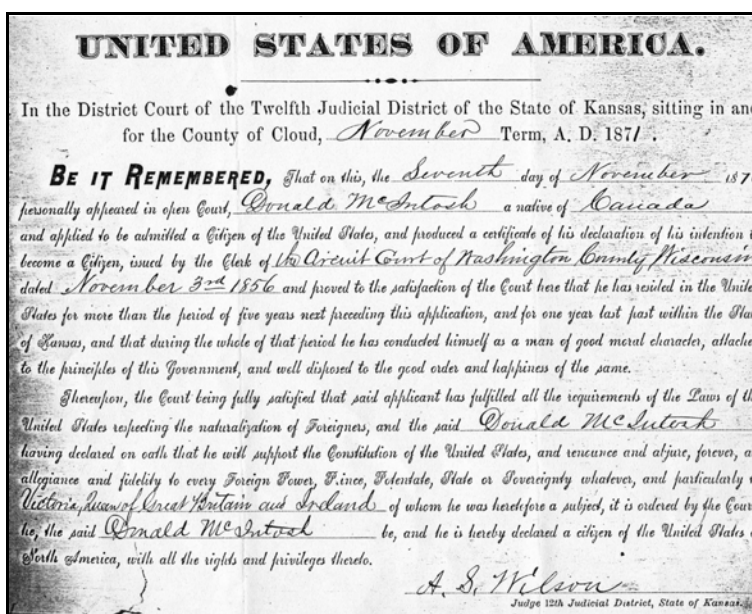 UNITED STATES OF AMERICA.
In the District Court of the Twelfth Judicial District of the State of Kansas, sitting in and
for the County of Cloud, November Term, A. D. 1871.
BE IT REMEMBERED, That on this, the Seventh day of November 187
personally appeared in open Court, Donald McIntosh a native of Canada
and applied to be admitted a Citizen of the United States, and produced a certificate of his declaration of his intention t
become a Citizen, issued by the Clerk of the Circuit Court of Washington County Wisconsin
dated November 3rd 1856 and proved to the satisfaction of the Court here that he has resided in the Unite
States for more than the period of five years next preceding this application, and for one year last past within the Stat
of Kansas, and that during the whole of that period he has conducted himself as a man of good moral character, attache
to the principles of this Government, and well disposed to the good order and happiness of the same.
Thereupon, the Court being fully satisfied that said applicant has fulfilled all the requirements of the Laws of th
United States respecting the naturalization of Foreigners, and the said Donald McIntosh
having declared on oath that he will support the Constitution of the United States, and renounce and abjure, forever, al
allegiance and fidelity to every Foreign Power, Prince, Potentate, State or Sovereignty whatever, and particularly
Victoria, Queen of Great Britain and Ireland of whom he was heretofore a subject, it is ordered by the Cour
he, the said Donald McIntosh be, and he is hereby declared a citizen of the United States
North America, with all the rights and privileges thereto.
A. S. Wilson
Judge 12th Judicial District, State of Kansas